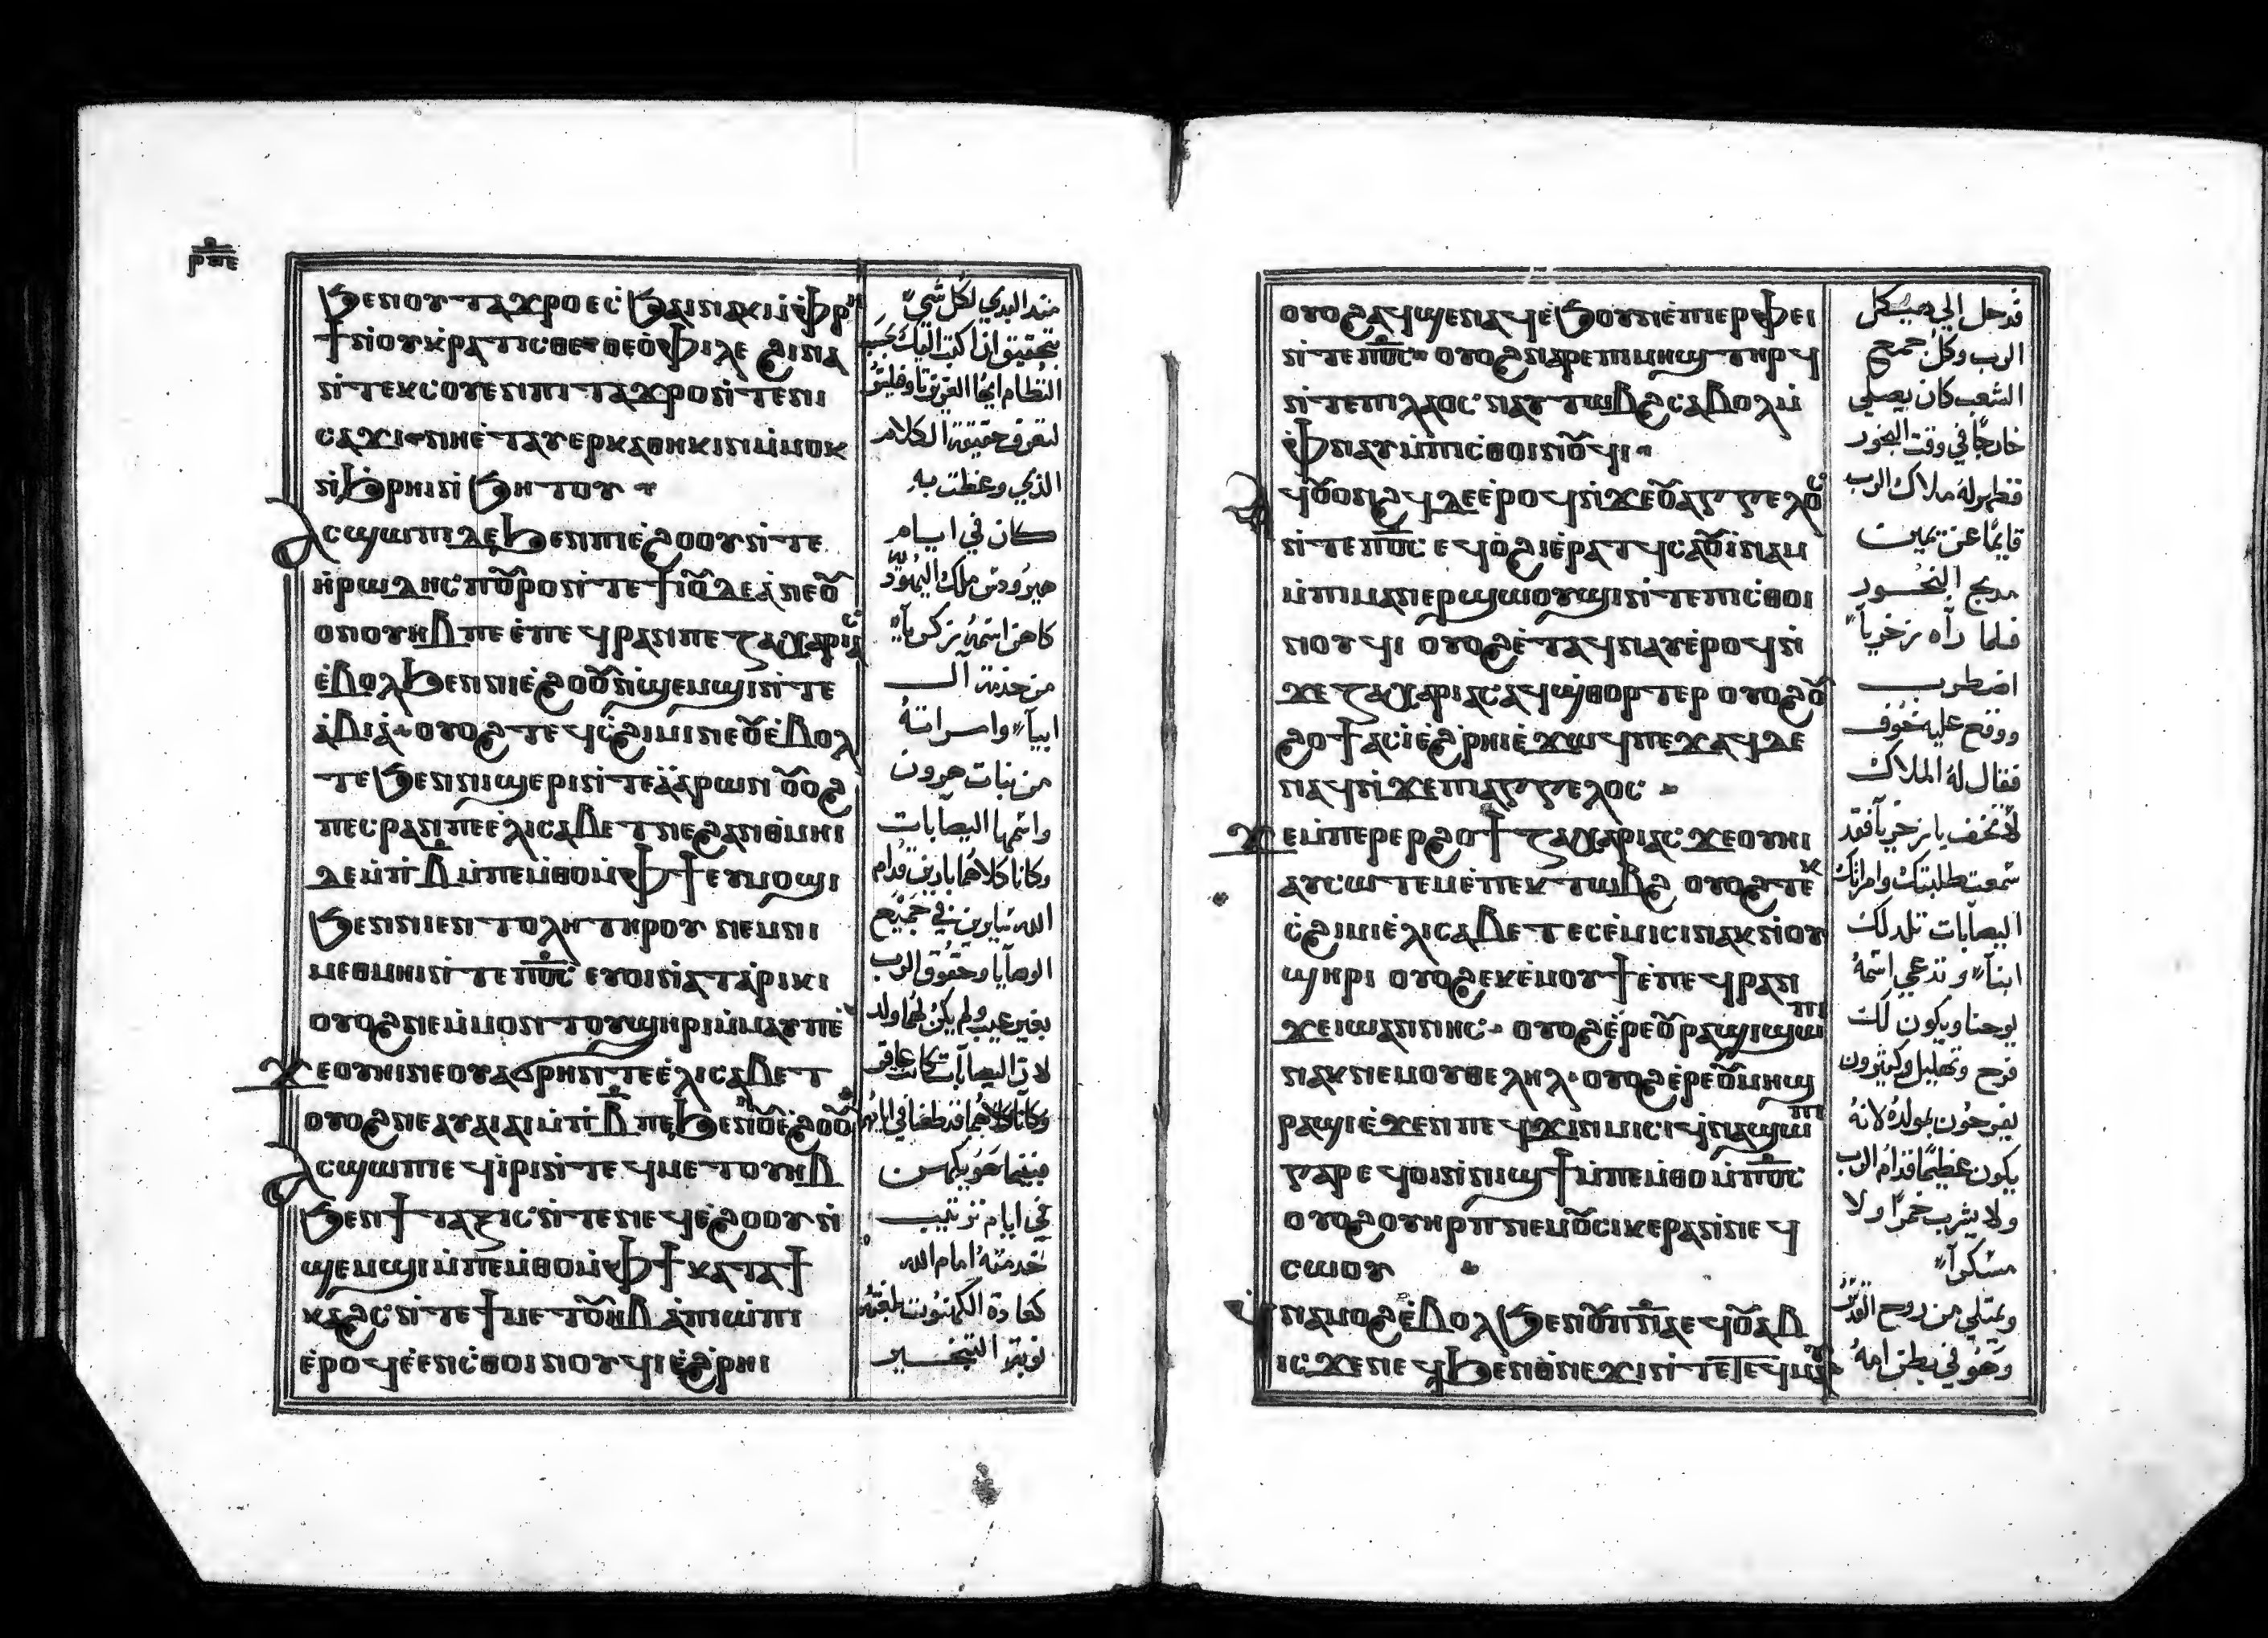 ⲣⲡⲉ
ϧⲉⲛⲟⲩⲧⲁϫⲣⲟ ⲉⲥ̀ϧⲁⲓⲛⲁⲕ ⲙ̀ⲫ̀ⲣⲏ
ϯ ⲛ̀ⲟⲩⲕⲣⲁⲧⲓⲥⲑⲉ ⲑⲉⲟ̀ⲫⲓⲗⲉ ϩⲓⲛⲁ
ⲛ̀ⲧⲉⲕⲥⲟⲩⲉⲛ ⲡⲓⲧⲁϫⲣⲟ ⲛ̀ⲧⲉⲛⲓ
ⲥⲁϫⲓ ⲛⲏⲉ̀ⲧⲁⲩⲉⲣⲕⲁⲑⲏⲕⲓⲛ ⲙ̀ⲙⲟⲕ
ⲛ̀ϧ̀ⲣⲏⲓ ⲛ̀ϧⲏⲧⲟⲩ
ⲁⲥϣⲱⲡⲓ ⲇⲉ ϧⲉⲛⲡⲓⲉ̀ϩⲟⲟⲩ ⲛ̀ⲧⲉ
ⲏ̀ⲣⲱⲇⲏⲥ ⲡⲟⲩⲣⲟ ⲛ̀ⲧⲉϯⲓⲟⲩⲇⲉⲁ̀ ⲛⲉⲟⲩ
ⲟⲛⲟⲩⲏⲃ ⲡⲉ ⲉ̀ⲡⲉϥⲣⲁⲛ ⲡⲉ ⲍⲁⲭⲁⲣⲓⲁⲥ
ⲉ̀ⲃⲟⲗϧⲉⲛ ⲛⲓⲉ̀ϩⲟⲟⲩ ⲛ̀ϣⲉⲙϣⲓ ⲛ̀ⲧⲉ
ⲁ̀ⲃⲓⲁ̀ ⲟⲩⲟϩ ⲧⲉϥⲥ̀ϩⲓⲙⲓ ⲛⲉⲟⲩⲉ̀ⲃⲟⲗ
ⲧⲉ ϧⲉⲛⲛⲓϣⲉⲣⲓ ⲛ̀ⲧⲉⲁ̀ⲁ̀ⲣⲱⲛ ⲟⲩⲟϩ
ⲡⲉⲥⲣⲁⲛ ⲡⲉ ⲉ̀ⲗⲓⲥⲁⲃⲉⲧ ⲛⲉϩⲁⲛⲑⲙⲏⲓ
ⲇⲉ ⲙ̀ⲡⲃ̄ ⲙ̀ⲡⲉⲙⲑⲟ ⲙ̀ⲫϯ ⲉⲩⲙⲟϣⲓ
ϧⲉⲛⲛⲓⲉⲛⲧⲟⲗⲏ ⲧⲏⲣⲟⲩ ⲛⲉⲙⲛⲓ
ⲙⲉⲑⲙⲏⲓ ⲛ̀ⲧⲉⲡⲟ̄ⲥ̄ ⲉⲩⲟⲓ ⲛ̀ⲁⲧⲁ̀ⲣⲓⲕⲓ
ⲟⲩⲟϩ ⲛⲉⲙ̀ⲙⲟⲛⲧⲟⲩϣⲏⲣⲓ ⲙ̀ⲙⲁⲩ ⲡⲉ̀
ϫⲉⲟⲩⲏⲓ ⲛⲉⲟⲩⲁϭⲣⲏⲛ ⲧⲉ ⲉ̀ⲗⲓⲥⲁⲃⲉⲧ
ⲟⲩⲟϩ ⲛⲉⲁⲩⲁⲓⲁⲓ ⲙ̀ⲡⲃ̄ ⲡⲉ ϧⲉⲛⲟⲩⲉ̀ϩⲟⲟⲩ
ⲁⲥϣⲱⲡⲓ ⲉϥⲓ̀ⲣⲓ ⲛ̀ⲧⲉϥⲙⲉⲧⲟⲩⲏⲃ
ϧⲉⲛϯⲧⲁⲝⲓⲥ ⲛ̀ⲧⲉⲛⲉϥⲉ̀ϩⲟⲟⲩ ⲛ̀
ϣⲉⲙϣⲓ ⲙ̀ⲡⲉⲙ̀ⲑⲟ ⲙ̀ⲫϯ ⲕⲁⲧⲁϯ
ⲕⲁϩⲥ ⲛ̀ⲧⲉϯⲙⲉⲧⲟⲩⲏⲃ ⲁ̀ⲡⲓⲱⲡⲓ
ⲉ̀ⲣⲟϥ ⲉ̀ⲉⲛⲥ̀ⲑⲟⲓⲛⲟⲩϥⲓ ⲉ̀ϩ̀ⲣⲏⲓ
منذ البدي لكل شي
بتحقيق ان اكتب اليك بحسب
النظام ايها العزيز تاوفيلس
لتعرف حقيقة الكلام
الذي وعظت به
كان في ايام
هيرودس ملك اليهود
كاهن اسمهُ زكريآ
من خدمة ال
ابيآ وامراتهُ
من بنات هرون
واسمها اليصابات
وكانا كلاهما بارين قدام
الله سايرين في جميع
الوصايا وحقوق الرب
بغير عيب ولم يكن لهما ولد
لان اليصابات كانت عاقر
وكانا كلاهما قد طعنا في ايامهما
فبينما هو يكهن
في ايام ترتيب
خدمتهُ امام الله
كعادة الكهنوت بلغتهُ
نوبة التبخير
ⲟⲩⲟϩ ⲁϥϣⲉⲛⲁϥ ⲉ̀ϧⲟⲩⲛ ⲉ̀ⲡⲓⲉⲣⲫⲉⲓ
ⲛ̀ⲧⲉⲡⲟ̄ⲥ̄ ⲟⲩⲟϩ ⲛⲁⲣⲉⲡⲓⲙⲏϣ ⲧⲏⲣϥ
ⲛ̀ⲧⲉⲡⲓⲗⲁⲟⲥ ⲛⲁⲩⲧⲱⲃϩ ⲥⲁⲃⲟⲗ ⲙ̀
ⲫⲛⲁⲩ ⲙ̀ⲡⲓⲥ̀ⲑⲟⲓⲛⲟⲩϥⲓ
ⲁϥⲟⲩⲟⲛϩϥ ⲇⲉ ⲉ̀ⲣⲟϥ ⲛ̀ϫⲉⲟⲩⲁⲅⲅⲉⲗⲟⲥ
ⲛ̀ⲧⲉⲡⲟ̄ⲥ̄ ⲉϥⲟ̀ϩⲓ ⲉ̀ⲣⲁⲧϥ ⲥⲁⲟⲩⲓ̀ⲛⲁⲙ
ⲙ̀ⲡⲓⲙⲁⲛⲉⲣϣⲱⲟⲩϣⲓ ⲛ̀ⲧⲉⲡⲓⲥ̀ⲑⲟⲓ
ⲛⲟⲩϥⲓ ⲟⲩⲟϩ ⲉ̀ⲧⲁϥⲛⲁⲩ ⲉ̀ⲣⲟϥ ⲛ̀
ϫⲉ ⲍⲁⲭⲁⲣⲓⲁⲥ ⲁϥϣ̀ⲑⲟⲣⲧⲉⲣ ⲟⲩⲟϩ ⲟⲩ
ϩⲟϯ ⲁⲥⲓ̀ ⲉ̀ϩ̀ⲣⲏⲓ ⲉ̀ϫⲱϥ ⲡⲉϫⲁϥ ⲇⲉ
ⲛⲁϥ ⲛ̀ϫⲉⲡⲓⲁⲅⲅⲉⲗⲟⲥ
ϫⲉ ⲙ̀ⲡⲉⲣⲉⲣϩⲟϯ ⲍⲁⲭⲁⲣⲓⲁⲥ ϫⲉⲟⲩⲏⲓ
ⲁⲩⲥⲱⲧⲉⲙ ⲉ̀ⲡⲉⲕⲧⲱⲃϩ ⲟⲩⲟϩ ⲧⲉⲕ
ⲥ̀ϩⲓⲙⲓ ⲉ̀ⲗⲓⲥⲁⲃⲉⲧ ⲉⲥⲉ̀ⲙⲓⲥⲓ ⲛⲁⲕ ⲛ̀ⲟⲩ
ϣⲏⲣⲓ ⲟⲩⲟϩ ⲉⲕⲉ̀ⲙⲟⲩϯ ⲉ̀ⲡⲉϥⲣⲁⲛ
ϫⲉⲓⲱⲁⲛⲛⲏⲥ ⲟⲩⲟϩ ⲉ̀ⲣⲉⲟⲩⲣⲁϣⲓ ϣⲱⲡⲓ
ⲛⲁⲕ ⲛⲉⲙⲟⲩⲑⲉⲗⲏⲗ ⲟⲩⲟϩ ⲉ̀ⲣⲉⲟⲩⲙⲏϣ
ⲣⲁϣⲓ ⲉ̀ϫⲉⲛⲡⲉϥϫⲓⲛⲙⲓⲥⲓ ϥⲛⲁϣⲱⲡⲓ
ⲅⲁⲣ ⲉϥⲟⲓ ⲛ̀ⲛⲓϣϯ ⲙ̀ⲡⲉⲙⲑⲟ ⲙ̀ⲡⲟ̄ⲥ̄
ⲟⲩⲟϩ ⲟⲩⲏⲣⲡ ⲛⲉⲙⲟⲩⲥⲓⲕⲉⲣⲁ ⲛ̀ⲛⲉϥ
ⲥⲱⲟⲩ
ϥⲛⲁⲙⲟϩ ⲉ̀ⲃⲟⲗϧⲉⲛⲟⲩⲡ̄ⲛ̄ⲁ̄ ⲉϥⲟⲩⲁⲃ
ⲓⲥϫⲉⲛ ⲉϥϧⲉⲛⲑ̀ⲛⲉϫⲓ ⲛ̀ⲧⲉⲧⲉϥⲙⲁⲩ
فدخل الي هيكل
الرب وكل جمع
الشعب كان يصلي
خارجًا في وقت البخور
فظهر لهُ ملاك الرب
قايمًا عن يمين
مدبح البخور
فلما رآه زخريآ
اضطرب
ووقع عليه خوف
فقال لهُ الملاك
لا تخف يا زخريآ فقد
سمعت طلبتك وامراتك
اليصابات تلد لك
ابنآ وتدعي اسمهُ
يوحنا ويكون لك
فرح وتهليل وكثيرون
يفرحون بمولدهُ لانهُ
يكون عظيمًا قدام الرب
ولا يشرب خمرًا ولا
مسكرآ
ويمتلي من روح القدس
وهو في بطن امهُ